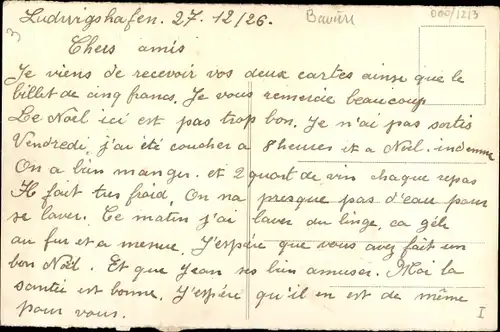 Ludwigshafen. 27. 12/26.
Bavière
000/1213
3
Chers amis
Je viens de recevoir vos deux cartes ainse que le
billet de cinq francs. Je vous remercie beaucoup
Le Noël ici est pas trop bon. Je n'ai pas sortis
Vendredi, j'ai été coucher a 8 heures et a Noël. indemne
On a bien manger. et 2 quart de vin chaque repas
Il fait tres froid, On na presque pas d'eau pour
se laver. Ce matin j'ai laver du linge, ca gèle
au fur et a mesure. J'espère que vous avez fait un
bon Noël. Et que Jean ses bien amuser. Moi la
santée est bonne. J'espère qu'il en est de même
pour vous.
I